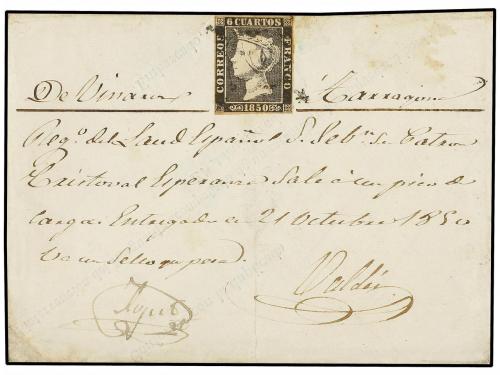 6 CUARTOS
CORREOS FRANCO
1850
De Vinaroz Tarragona
Reg.º del Laud Español S. Seb.n su Patron
Cristoval Esperanza Sale á un pico de
carga. Entregado en 21 Octubre 1850
Va un Sello
Valdés